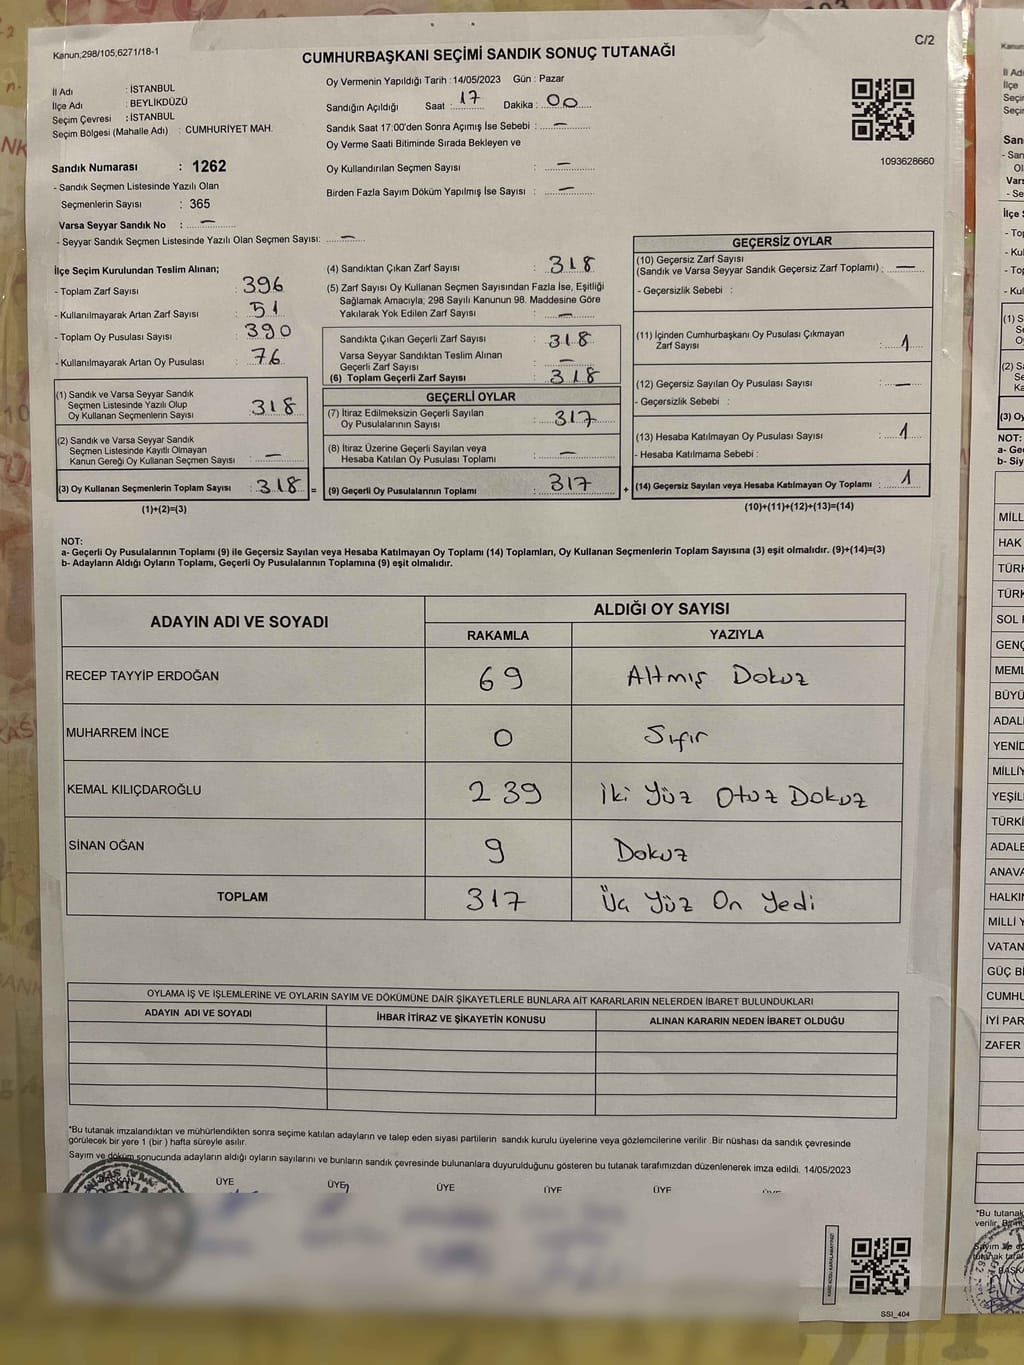 Kanun;298/105,6271/18-1
C/2
CUMHURBAŞKANI SEÇİMİ SANDIK SONUÇ TUTANAĞI
İl Adı : İSTANBUL
İlçe Adı : BEYLİKDÜZÜ
Seçim Çevresi : İSTANBUL
Seçim Bölgesi (Mahalle Adı) : CUMHURİYET MAH.
Sandık Numarası : 1262
- Sandık Seçmen Listesinde Yazılı Olan
Seçmenlerin Sayısı : 365
Varsa Seyyar Sandık No : —
- Seyyar Sandık Seçmen Listesinde Yazılı Olan Seçmen Sayısı: —
Oy Vermenin Yapıldığı Tarih : 14/05/2023 Gün : Pazar
Sandığın Açıldığı Saat : 17 Dakika : 00
Sandık Saat 17:00'den Sonra Açımış İse Sebebi : —
Oy Verme Saati Bitiminde Sırada Bekleyen ve
Oy Kullandırılan Seçmen Sayısı : —
Birden Fazla Sayım Döküm Yapılmış İse Sayısı : —
1093628660
İlçe Seçim Kurulundan Teslim Alınan;
- Toplam Zarf Sayısı : 396
- Kullanılmayarak Artan Zarf Sayısı : 51
- Toplam Oy Pusulası Sayısı : 390
- Kullanılmayarak Artan Oy Pusulası : 76
(1) Sandık ve Varsa Seyyar Sandık
Seçmen Listesinde Yazılı Olup
Oy Kullanan Seçmenlerin Sayısı : 318
(2) Sandık ve Varsa Seyyar Sandık
Seçmen Listesinde Kayıtlı Olmayan
Kanun Gereği Oy Kullanan Seçmen Sayısı : —
(3) Oy Kullanan Seçmenlerin Toplam Sayısı : 318 =
(1)+(2)=(3)
(4) Sandıktan Çıkan Zarf Sayısı : 318
(5) Zarf Sayısı Oy Kullanan Seçmen Sayısından Fazla İse, Eşitliği
Sağlamak Amacıyla; 298 Sayılı Kanunun 98. Maddesine Göre
Yakılarak Yok Edilen Zarf Sayısı : —
Sandıkta Çıkan Geçerli Zarf Sayısı : 318
Varsa Seyyar Sandıktan Teslim Alınan
Geçerli Zarf Sayısı : —
(6) Toplam Geçerli Zarf Sayısı : 318
GEÇERLİ OYLAR
(7) İtiraz Edilmeksizin Geçerli Sayılan
Oy Pusulalarının Sayısı : 317
(8) İtiraz Üzerine Geçerli Sayılan veya
Hesaba Katılan Oy Pusulası Toplamı : —
(9) Geçerli Oy Pusulalarının Toplamı : 317 +
GEÇERSİZ OYLAR
(10) Geçersiz Zarf Sayısı
(Sandık ve Varsa Seyyar Sandık Geçersiz Zarf Toplamı) : —
- Geçersizlik Sebebi :
(11) İçinden Cumhurbaşkanı Oy Pusulası Çıkmayan
Zarf Sayısı : 1
(12) Geçersiz Sayılan Oy Pusulası Sayısı : —
- Geçersizlik Sebebi :
(13) Hesaba Katılmayan Oy Pusulası Sayısı : 1
- Hesaba Katılmama Sebebi :
(14) Geçersiz Sayılan veya Hesaba Katılmayan Oy Toplamı : 1
(10)+(11)+(12)+(13)=(14)
NOT:
a- Geçerli Oy Pusulalarının Toplamı (9) ile Geçersiz Sayılan veya Hesaba Katılmayan Oy Toplamı (14) Toplamları, Oy Kullanan Seçmenlerin Toplam Sayısına (3) eşit olmalıdır. (9)+(14)=(3)
b- Adayların Aldığı Oyların Toplamı, Geçerli Oy Pusulalarının Toplamına (9) eşit olmalıdır.
ADAYIN ADI VE SOYADI ALDIĞI OY SAYISI
RAKAMLA YAZIYLA
RECEP TAYYİP ERDOĞAN 69 Altmış Dokuz
MUHARREM İNCE 0 Sıfır
KEMAL KILIÇDAROĞLU 239 İki Yüz Otuz Dokuz
SİNAN OĞAN 9 Dokuz
TOPLAM 317 Üç Yüz On Yedi
OYLAMA İŞ VE İŞLEMLERİNE VE OYLARIN SAYIM VE DÖKÜMÜNE DAİR ŞİKAYETLERLE BUNLARA AİT KARARLARIN NELERDEN İBARET BULUNDUKLARI
ADAYIN ADI VE SOYADI İHBAR İTİRAZ VE ŞİKAYETİN KONUSU ALINAN KARARIN NEDEN İBARET OLDUĞU
*Bu tutanak imzalandıktan ve mühürlendikten sonra seçime katılan adayların ve talep eden siyasi partilerin sandık kurulu üyelerine veya gözlemcilerine verilir .Bir nüshası da sandık çevresinde
görülecek bir yere 1 (bir ) hafta süreyle asılır.
Sayım ve döküm sonucunda adayların aldığı oyların sayılarını ve bunların sandık çevresinde bulunanlara duyurulduğunu gösteren bu tutanak tarafımızdan düzenlenerek imza edildi. 14/05/2023
BAŞKAN ÜYE ÜYE ÜYE ÜYE ÜYE
SSI_404
Kanun
İl Adı
İlçe
Seçim
Seçim
San
- San
Vars
İlçe S
- Top
- Kul
- Top
- Kul
(3) Oy
NOT:
a- Geç
b- Siy
MİLL
HAK
TÜRK
TÜRK
SOL
GENÇ
MEML
BÜYÜ
ADAL
YENİD
MİLLİY
YEŞİL
TÜRKİ
ADALE
ANAVA
HALKIN
MİLLİ Y
VATAN
GÜÇ Bİ
CUMHU
İYİ PAR
ZAFER
*Bu tutanak
verilir. Bir